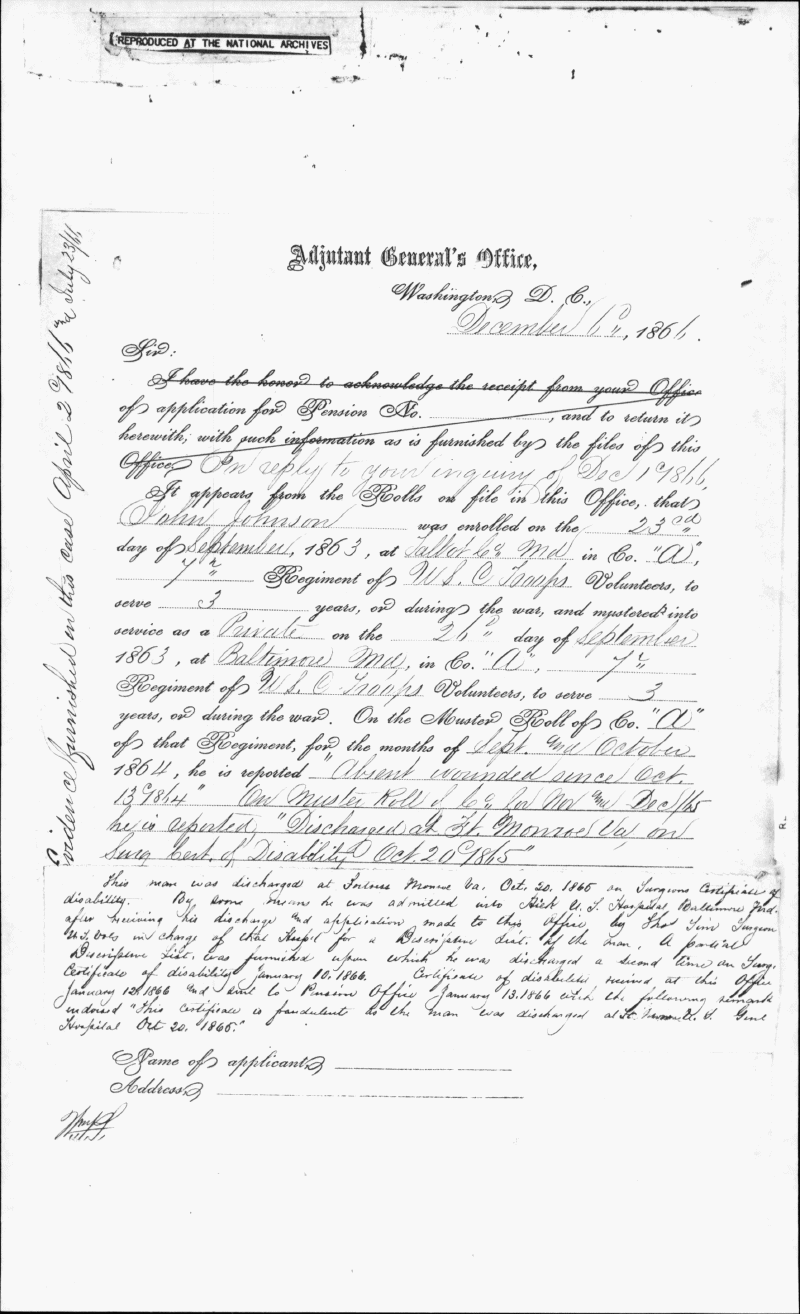 REPRODUCED AT THE NATIONAL ARCHIVES
Evidence furnished in this case April 2d 1866 & July 23/66
Adjutant General's Office,
Washington, D. C.,
December 6th, 1866.
Sir:
I have the honor to acknowledge the receipt from your Office
of application for Pension No. , and to return it
herewith, with such information as is furnished by the files of this
Office. In reply to your inquiry of Dec 1st 1866,
It appears from the Rolls on file in this Office, that
John Johnson was enrolled on the 23rd
day of September, 1863, at Talbot Co Md in Co. "A",
7th Regiment of U S. C Troops Volunteers, to
serve 3 years, or during the war, and mustered into
service as a Private on the 26th day of September
1863, at Baltimore Md, in Co. "A", 7th
Regiment of U S. C Troops Volunteers, to serve 3
years, or during the war. On the Muster Roll of Co. "A"
of that Regiment, for the months of Sept. and October
1864, he is reported "Absent wounded since Oct.
13th 1864" On Muster Roll of Co. for Nov and Dec/65
he is reported, "Discharged at Ft. Monroe Va, on
Surg Cert. of Disability Oct. 20th 1865"
This man was discharged at Fortress Monroe Va. Oct. 20. 1865 on Surgeons Certificate of
disability. By some means he was admitted into Hick U. S. Hospital Baltimore Md.
after receiving his discharge and application made to this office by Surgeon
U. S. Vols in charge of that Hospil for a Descriptive List. of the man, A partial
Descriptive List. was furnished upon which he was discharged a second time on Surg.
Certificate of disability January 10. 1866. Certificate of disability received at this Office
January 12th 1866 and sent to Pension Office January 13. 1866 with the following remark
indorsed "This certificate is fraudulent as the man was discharged at Ft. Monroe U. S. Genl
Hospital Oct 20. 1865."
Name of applicant,
Address,